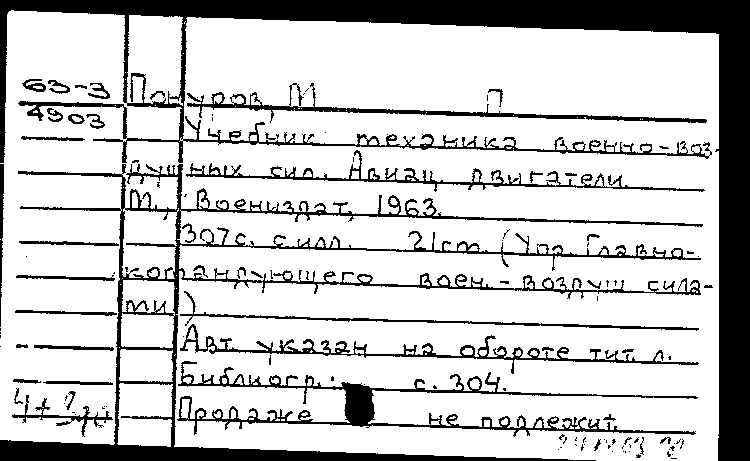 63-3 Понуров, М П
4903 Учебник техника военно-воз-
душных сил. Авиац. двигатели.
М., Воениздат, 1963.
307с. с илл. 21cm. (Упр. Главно-
командующего воен.-воздуш сила-
ми).
Авт. указан на обороте тит. л.
Библиогр.: с. 304.
Продаже не подлежит.